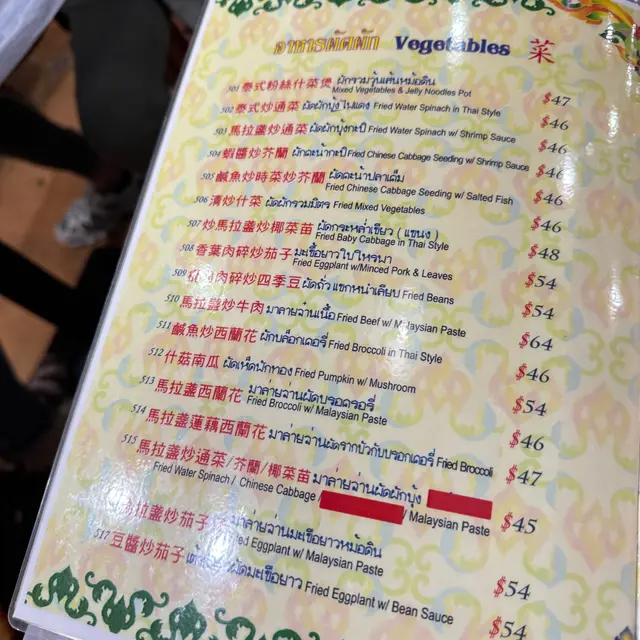 อาหารผัดผัก Vegetables 菜
501 泰式粉絲什菜煲 ผักรวมวุ้นเส้นหม้อดิน
Mixed Vegetables & Jelly Noodles Pot $47
502 泰式炒通菜 ผัดผักบุ้งไฟแดง Fried Water Spinach in Thai Style $46
503 馬拉盞炒通菜 ผัดผักบุ้งกะปิ Fried Water Spinach w/ Shrimp Sauce $46
504 蝦醬炒芥蘭 ผัดคะน้ากะปิ Fried Chinese Cabbage Seeding w/ Shrimp Sauce $46
505 鹹魚炒時菜炒芥蘭 ผัดคะน้าปลาเค็ม
Fried Chinese Cabbage Seeding w/ Salted Fish $46
506 清炒什菜 ผัดผักรวมมิตร Fried Mixed Vegetables $46
507 炒馬拉盞炒椰菜苗 ผัดกระหล่ำเขียว ( แขนง )
Fried Baby Cabbage in Thai Style $48
508 香葉肉碎炒茄子 มะเขือยาวใบโหรพา
Fried Eggplant w/Minced Pork & Leaves $54
509 肉碎炒四季豆 ผัดถั่วแขกหนำเลียบ Fried Beans $54
510 馬拉盞炒牛肉 มาลายจ่านเนื้อ Fried Beef w/ Malaysian Paste $64
511 鹹魚炒西蘭花 ผัดบล็อกเคอรี่ Fried Broccoli in Thai Style $46
512 什菇南瓜 ผัดเห็ดฟักทอง Fried Pumpkin w/ Mushroom $54
513 馬拉盞西蘭花 มาล่ายจ่านผัดบรอคอรี่
Fried Broccoli w/ Malaysian Paste $46
514 馬拉盞蓮藕西蘭花 มาล่ายจ่านผัดรากบัวกับบรอกเคอรี่ Fried Broccoli $47
515 馬拉盞炒通菜/芥蘭/椰菜苗 มาล่ายจ่านผัดผักบุ้ง
Fried Water Spinach / Chinese Cabbage / / Malaysian Paste $45
拉盞炒茄子 มาล่ายจ่านมะเขือยาวหม้อดิน
Eggplant w/ Malaysian Paste $54
517 豆醬炒茄子 เต้าเจี้ยวผัดมะเขือยาว Fried Eggplant w/ Bean Sauce $54